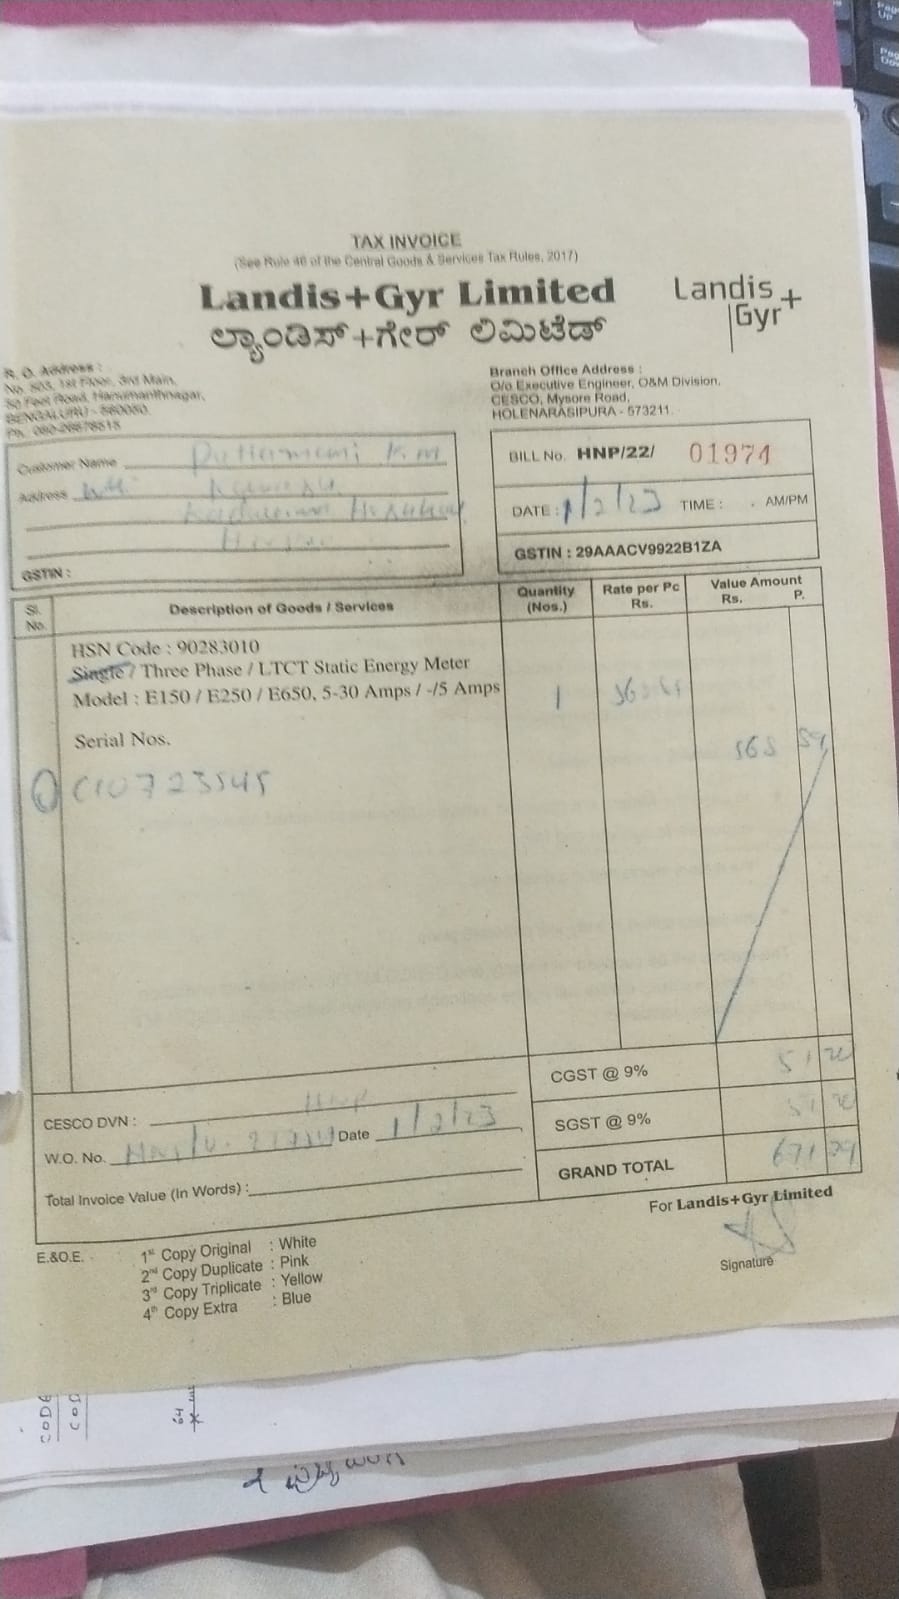 TAX INVOICE
(See Rule 46 of the Central Goods & Services Tax Rules, 2017)
Landis+Gyr Limited
ಲ್ಯಾಂಡಿಸ್+ಗೇರ್ ಲಿಮಿಟೆಡ್
Landis+
Gyr
R. O. Address :
No. 503, 1st Floor, 3rd Main,
50 Feet Road, Hanumanthnagar,
BENGALURU - 560050.
Ph. 080-26678515
Branch Office Address :
O/o Executive Engineer, O&M Division,
CESCO, Mysore Road,
HOLENARASIPURA - 573211.
Customer Name K.M
Address
GSTIN :
BILL No. HNP/22/ 01974
DATE : 1/2/23 TIME : AM/PM
GSTIN : 29AAACV9922B1ZA
Sl. No. Description of Goods / Services Quantity (Nos.) Rate per Pc Rs. Value Amount Rs. P.
HSN Code : 90283010
Single / Three Phase / LTCT Static Energy Meter
Model : E150 / E250 / E650, 5-30 Amps / -/5 Amps 1
Serial Nos.
568 59
C10723545
CGST @ 9% 51
SGST @ 9% 51
GRAND TOTAL 671
CESCO DVN : HNP
W.O. No. Date 1/2/23
Total Invoice Value (In Words) :
For Landis+Gyr Limited
Signature
E.&O.E.
1st Copy Original : White
2nd Copy Duplicate : Pink
3rd Copy Triplicate : Yellow
4th Copy Extra : Blue